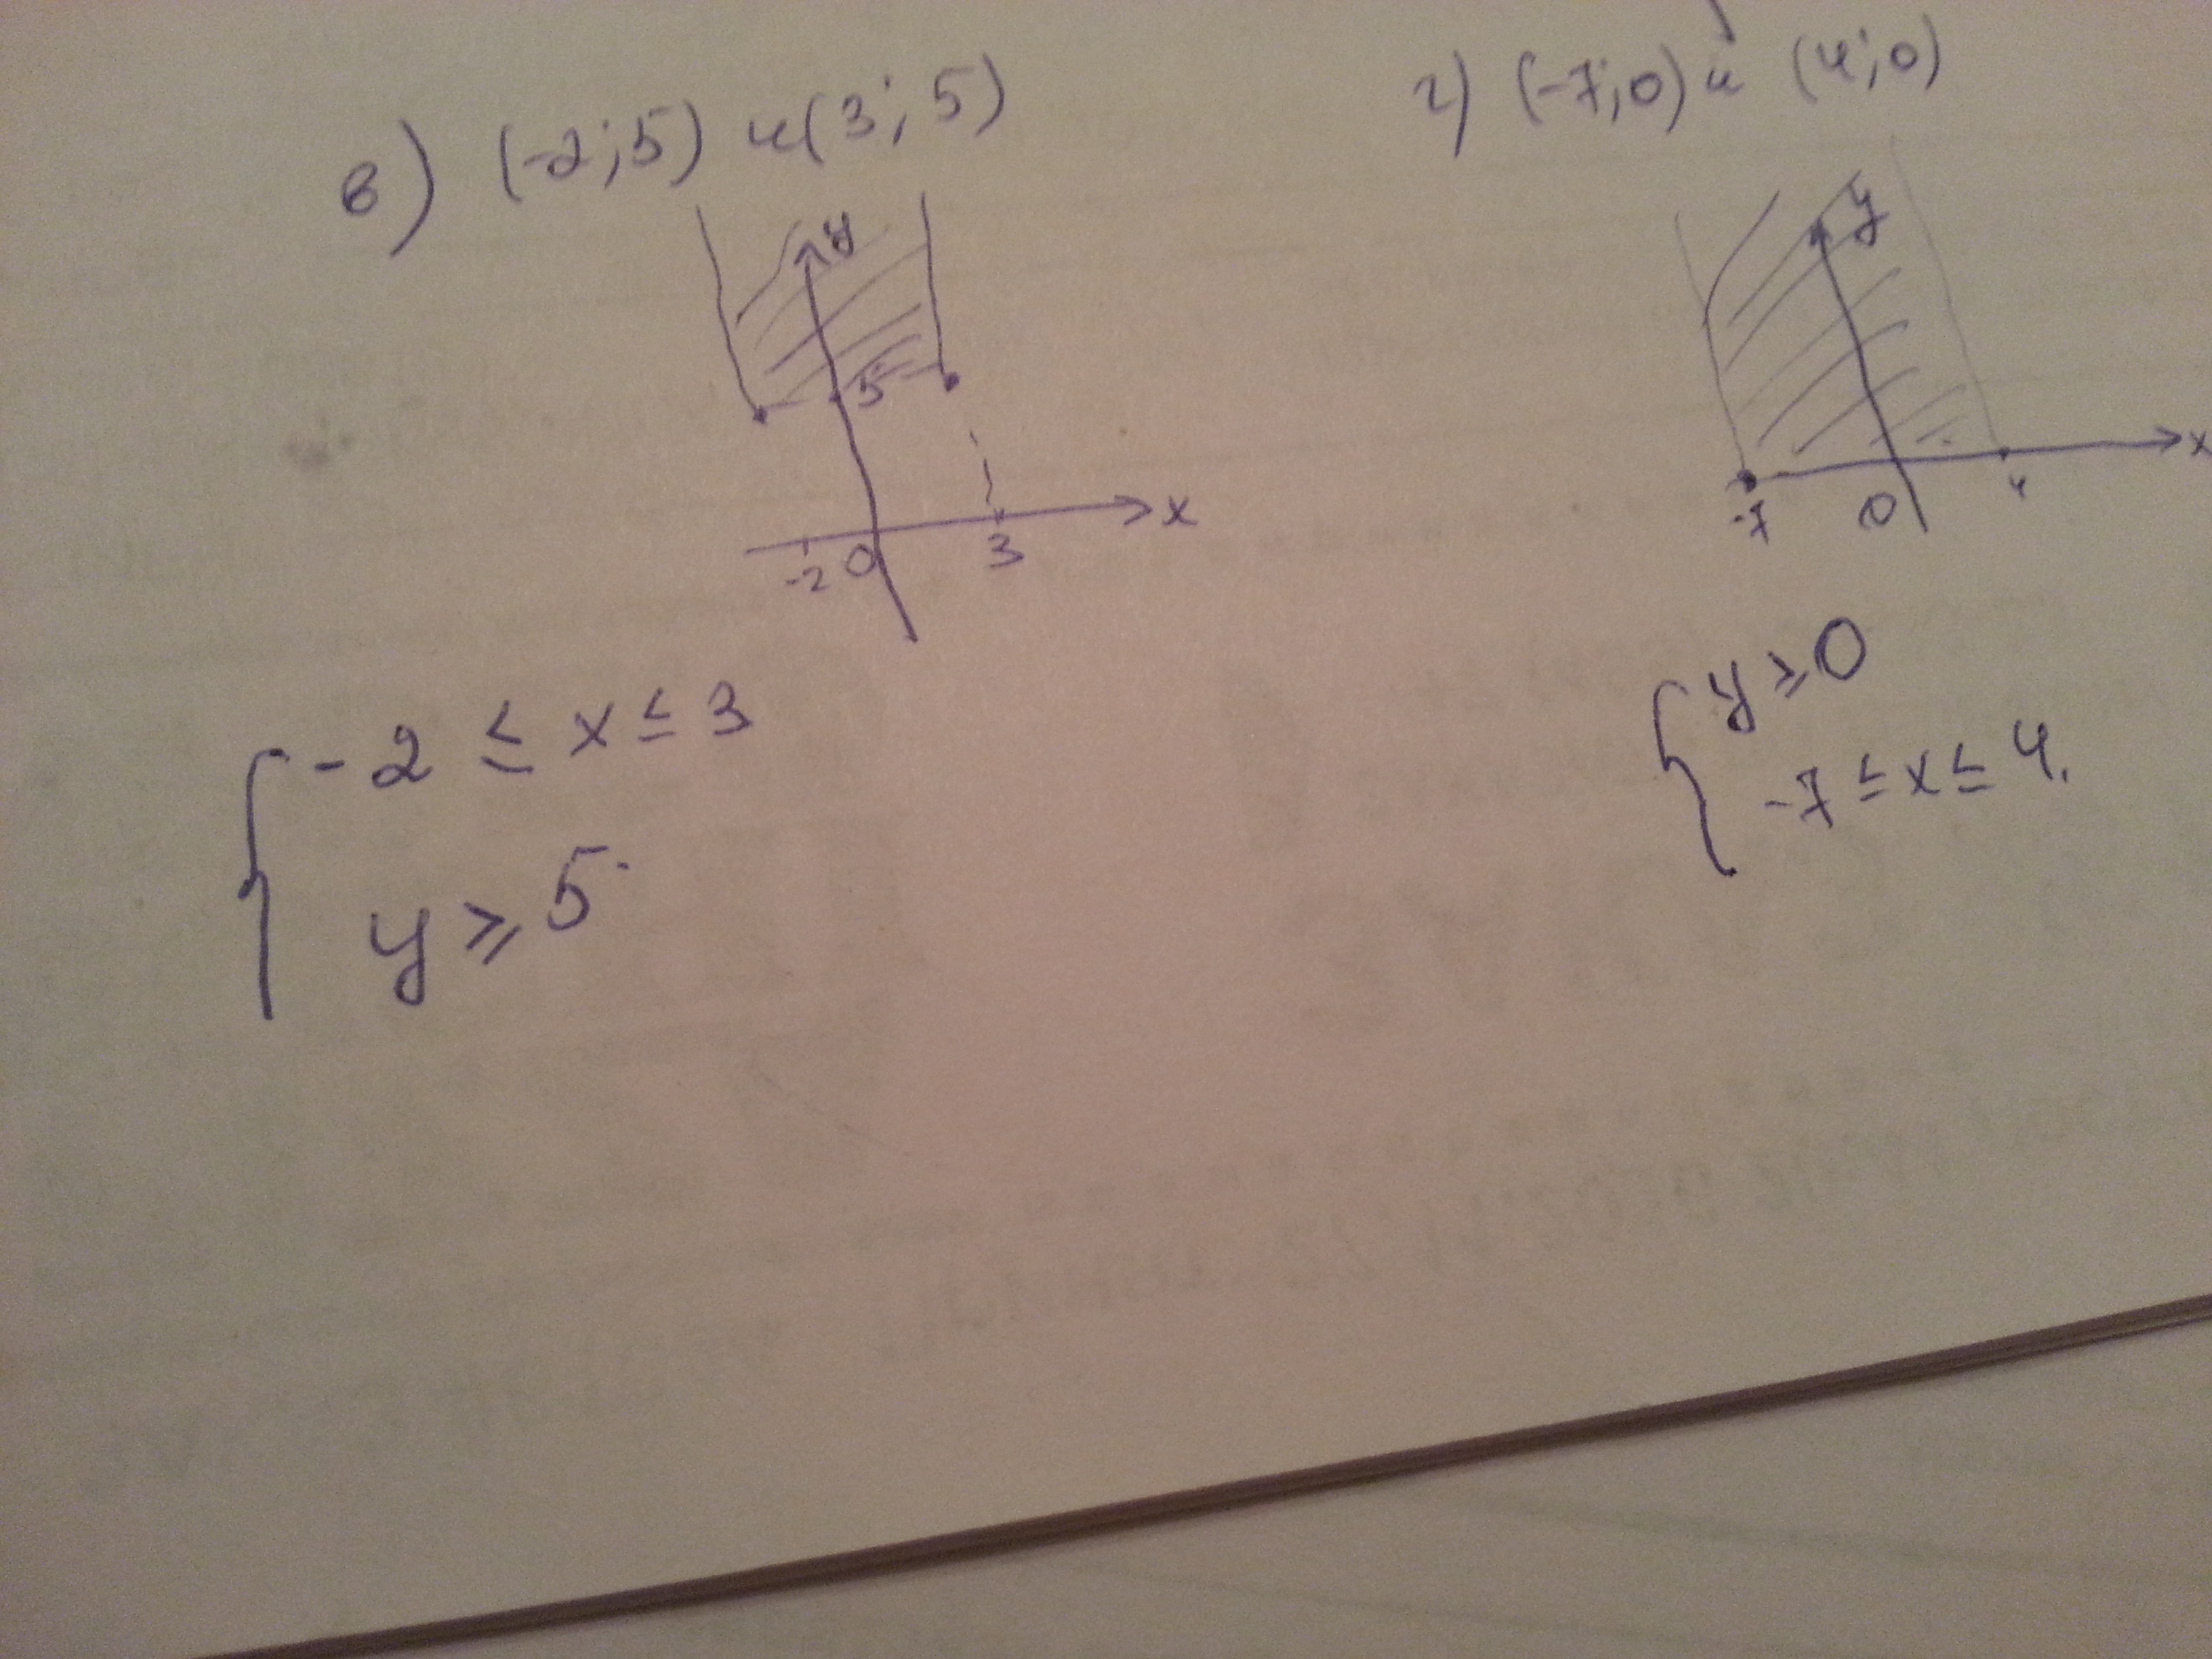 в) (-2; 5) и (3; 5)
y
5
x
-2 0 3
-2 ≤ x ≤ 3
y ≥ 5
г) (-7; 0) и (4; 0)
y
x
-7 0 4
y ≥ 0
-7 ≤ x ≤ 4.